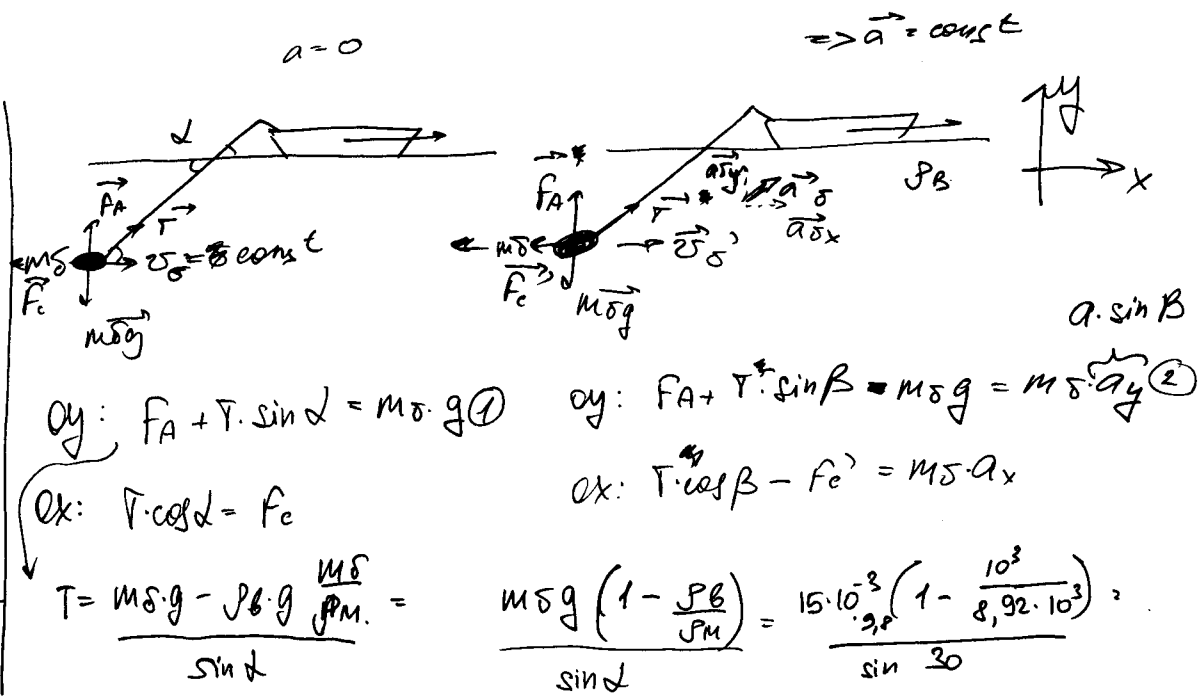 a = 0
=> a⃗ = const
α
F⃗A
T⃗
mб
υ⃗б = const
F⃗c
mб g⃗
y
x
ρв
F⃗A
T⃗
a⃗бy
a⃗б
a⃗бx
mб
υ⃗б'
F⃗c'
mб g⃗
a · sin β
oy: FA + T · sin α = mб · g ①
oy: FA + T · sin β - mб g = mб · ay ②
ox: T · cos α = Fc
ox: T · cos β - Fc' = mб · ax
T = (mб · g - ρв · g mб/ρм) / sin α = mб g (1 - ρв/ρм) / sin α = 15 · 10⁻³ · 9,8 (1 - 10³/(8,92 · 10³)) / sin 30 =